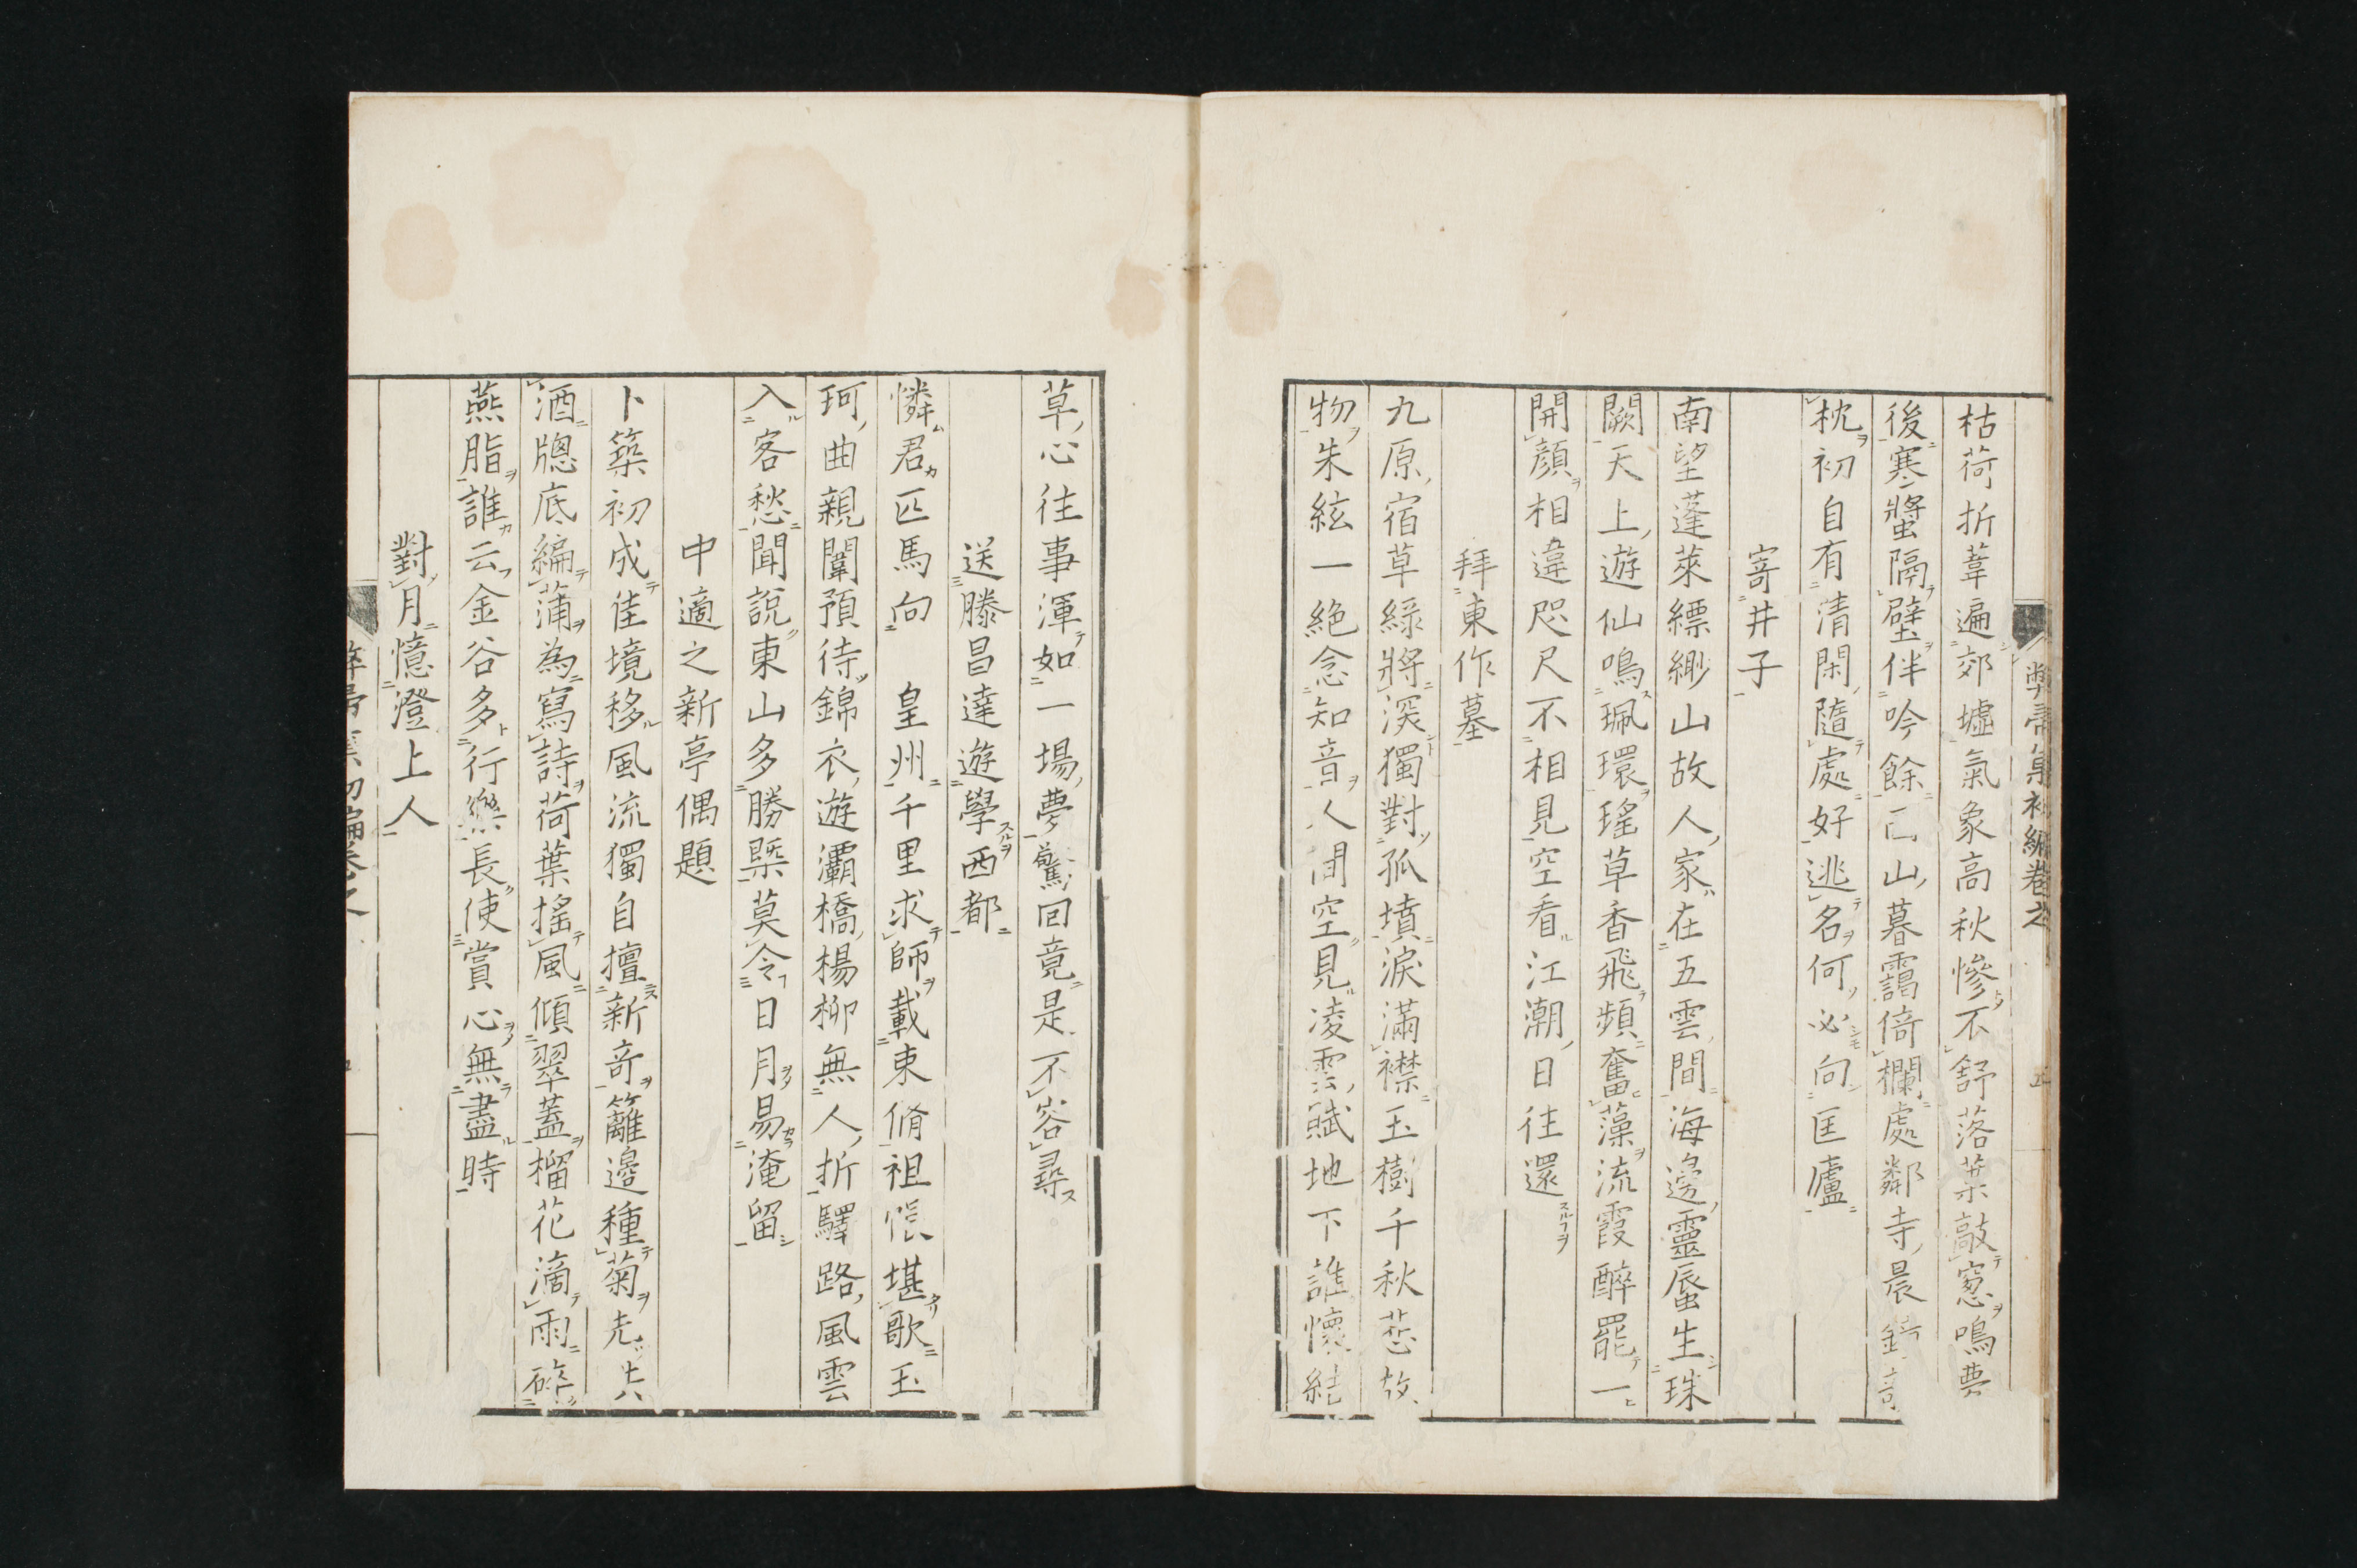 枯荷折葦遍郊墟氣象高秋慘不舒落葉敲窓鳴
後寒螿隔壁伴吟餘已山暮靄倚欄處鄰寺晨鐘
枕初自有清閑隨處好逃名何必向匡廬
寄井子
南望蓬萊縹緲山故人家在五雲間海邊靈蜃生珠
闕天上遊仙鳴珮環瑤草香飛頻奮藻流霞醉罷一
開顔相違咫尺不相見空看江潮日往還
拜東作墓
九原宿草綠將深獨對孤墳淚滿襟玉樹千秋悲故
物朱絃一絕念知音人間空見凌雲賦地下誰懷結
草心往事渾如一場夢驚回竟是不容尋
送滕昌達遊學西都
憐君匹馬向　皇州千里求師載束脩祖帳堪歌玉
珂曲親闈預待錦衣遊灞橋楊柳無人折驛路風雲
入客愁聞說東山多勝槩莫令日月易淹留
中適之新亭偶題
卜築初成佳境移風流獨自擅新奇籬邊種菊先
酒牕底編蒲為寫詩荷葉搖風傾翠蓋榴花滴雨碎
燕脂誰云金谷多行樂長使賞心無盡時
對月憶澄上人